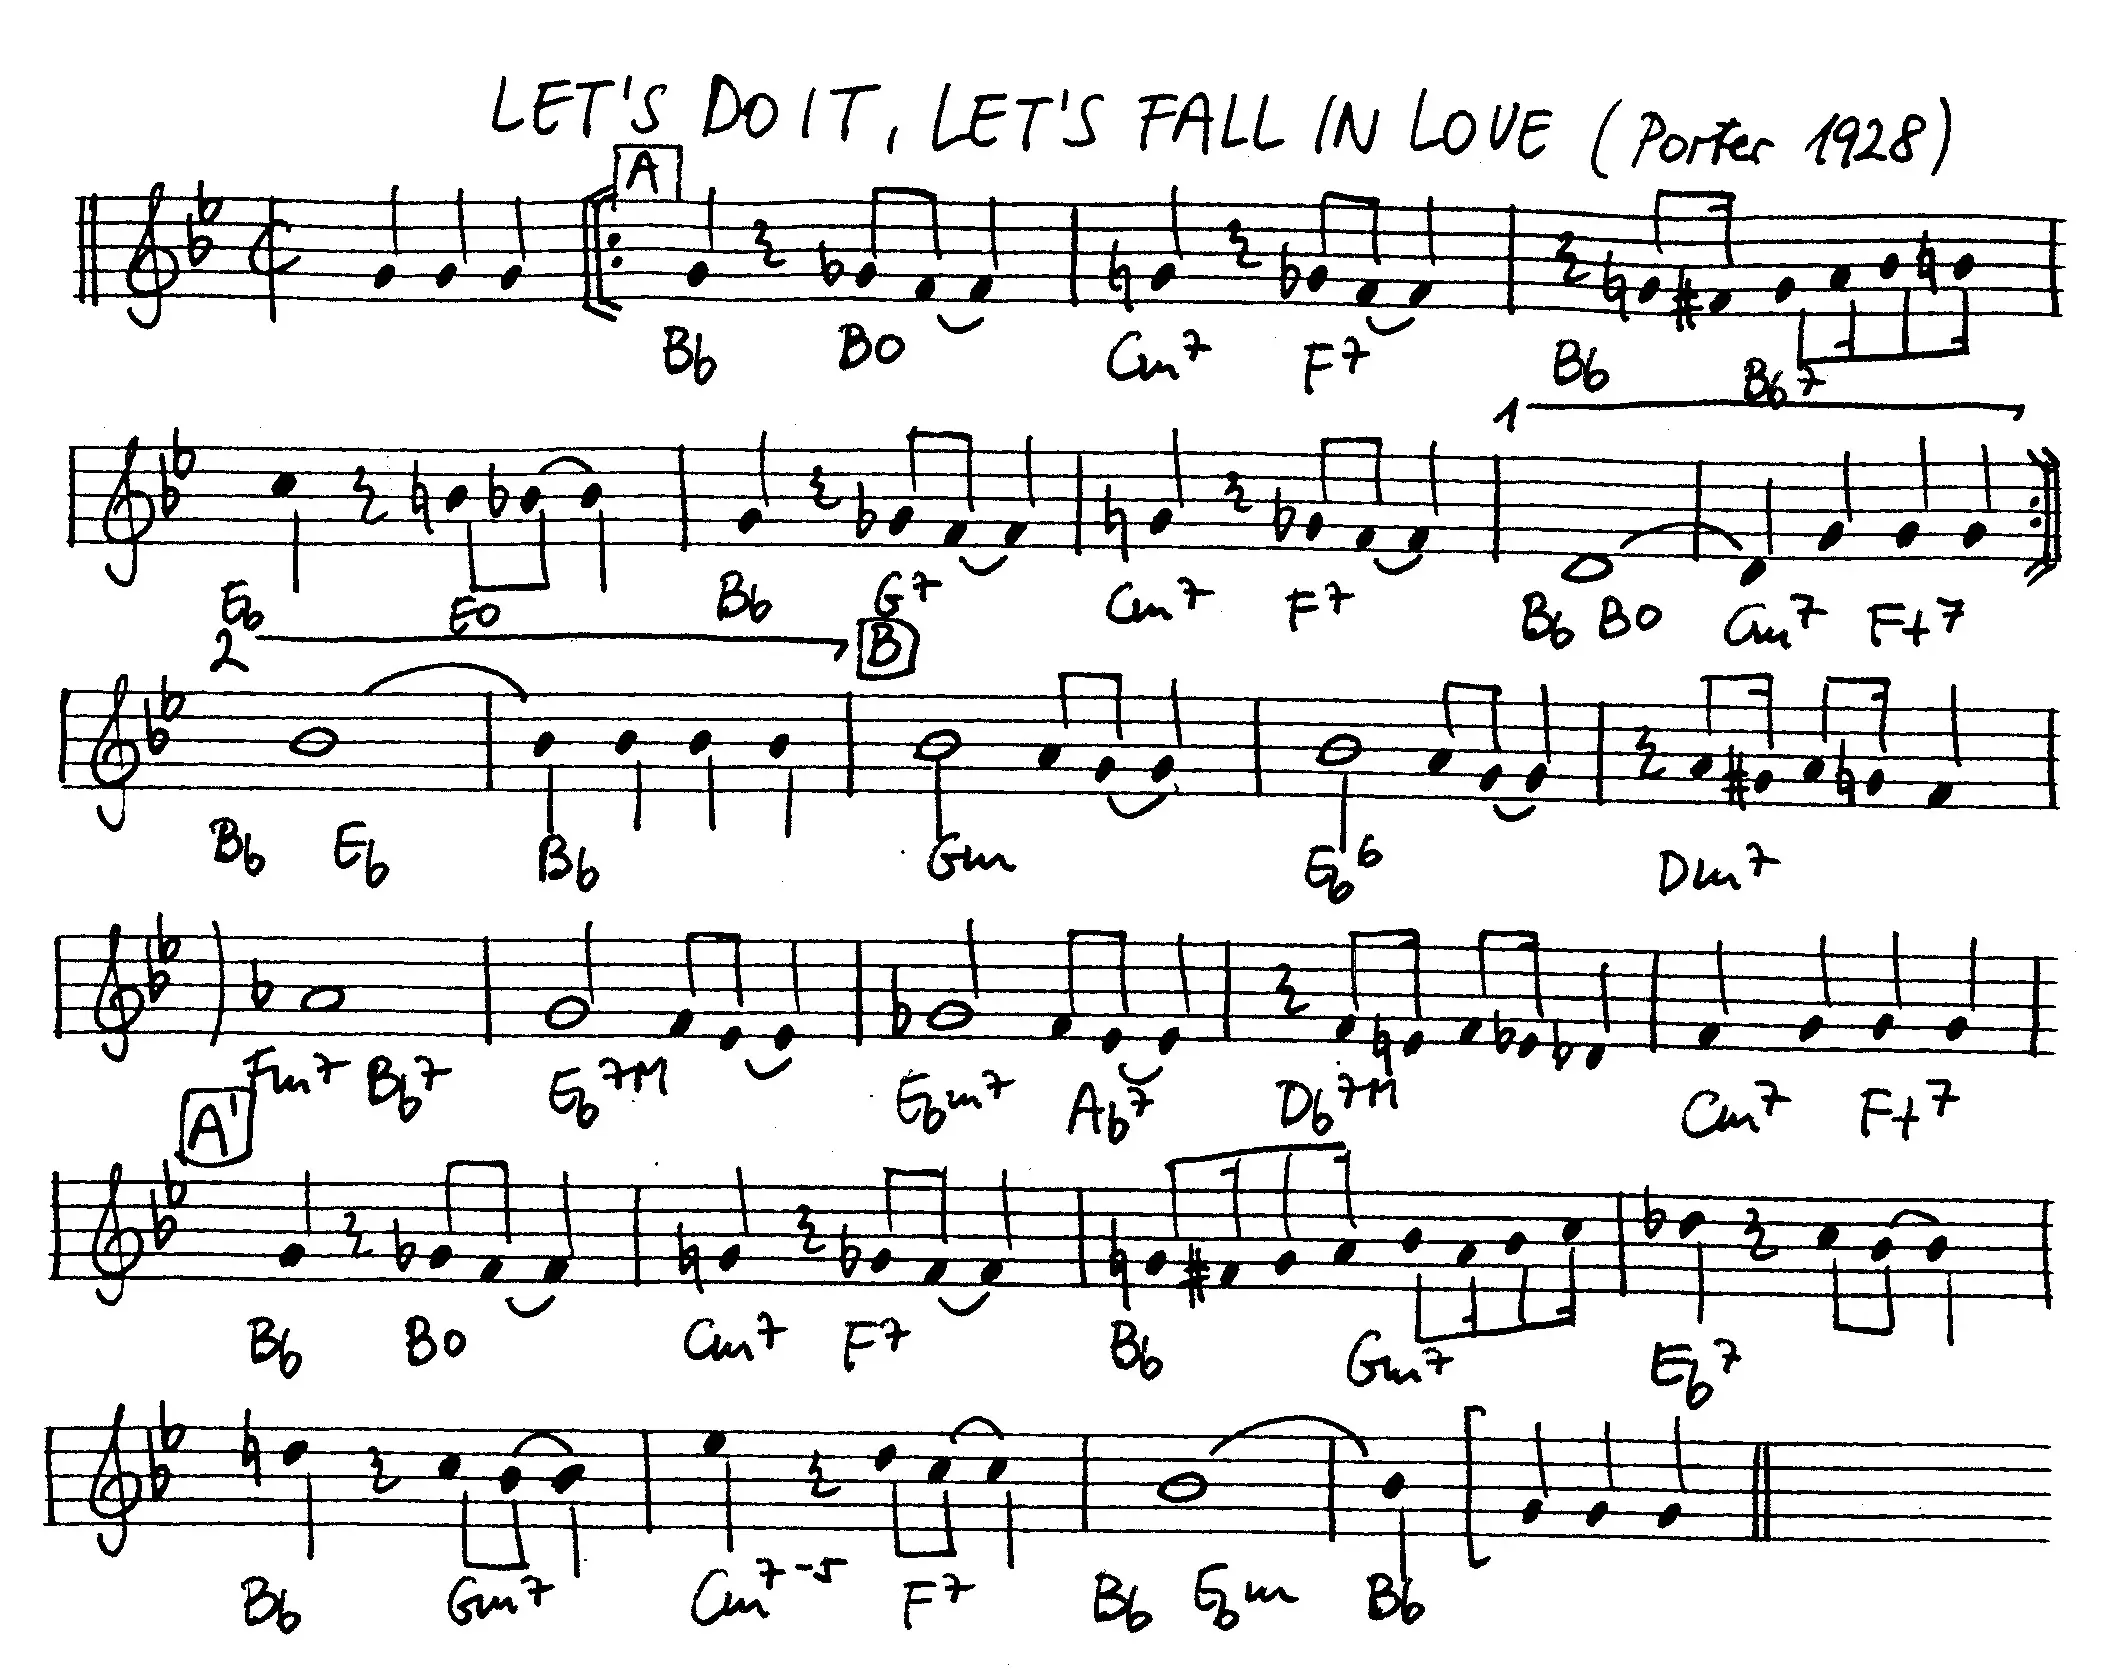 LET'S DO IT, LET'S FALL IN LOVE (Porter 1928)
A
Bb Bo Cm7 F7 Bb Bb7
1
Eb Eo Bb G7 Cm7 F7 Bb Bo Cm7 F+7
2 B
Bb Eb Bb Gm Eb6 Dm7
Fm7 Bb7 Eb7M Ebm7 Ab7 Db7M Cm7 F+7
A'
Bb Bo Cm7 F7 Bb Gm7 Eb7
Bb Gm7 Cm7-5 F7 Bb Ebm Bb